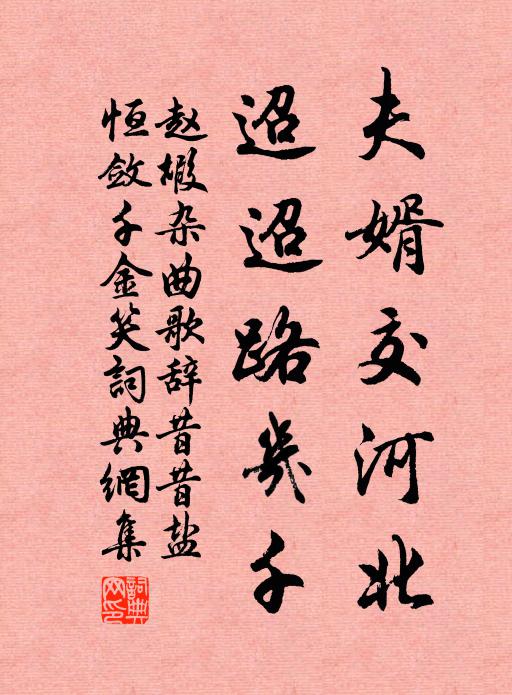 夫婿交河北
迢迢路幾千
赵嘏杂曲歌辞昔昔盐
恒敛千金笑詞典網集
詞典網印